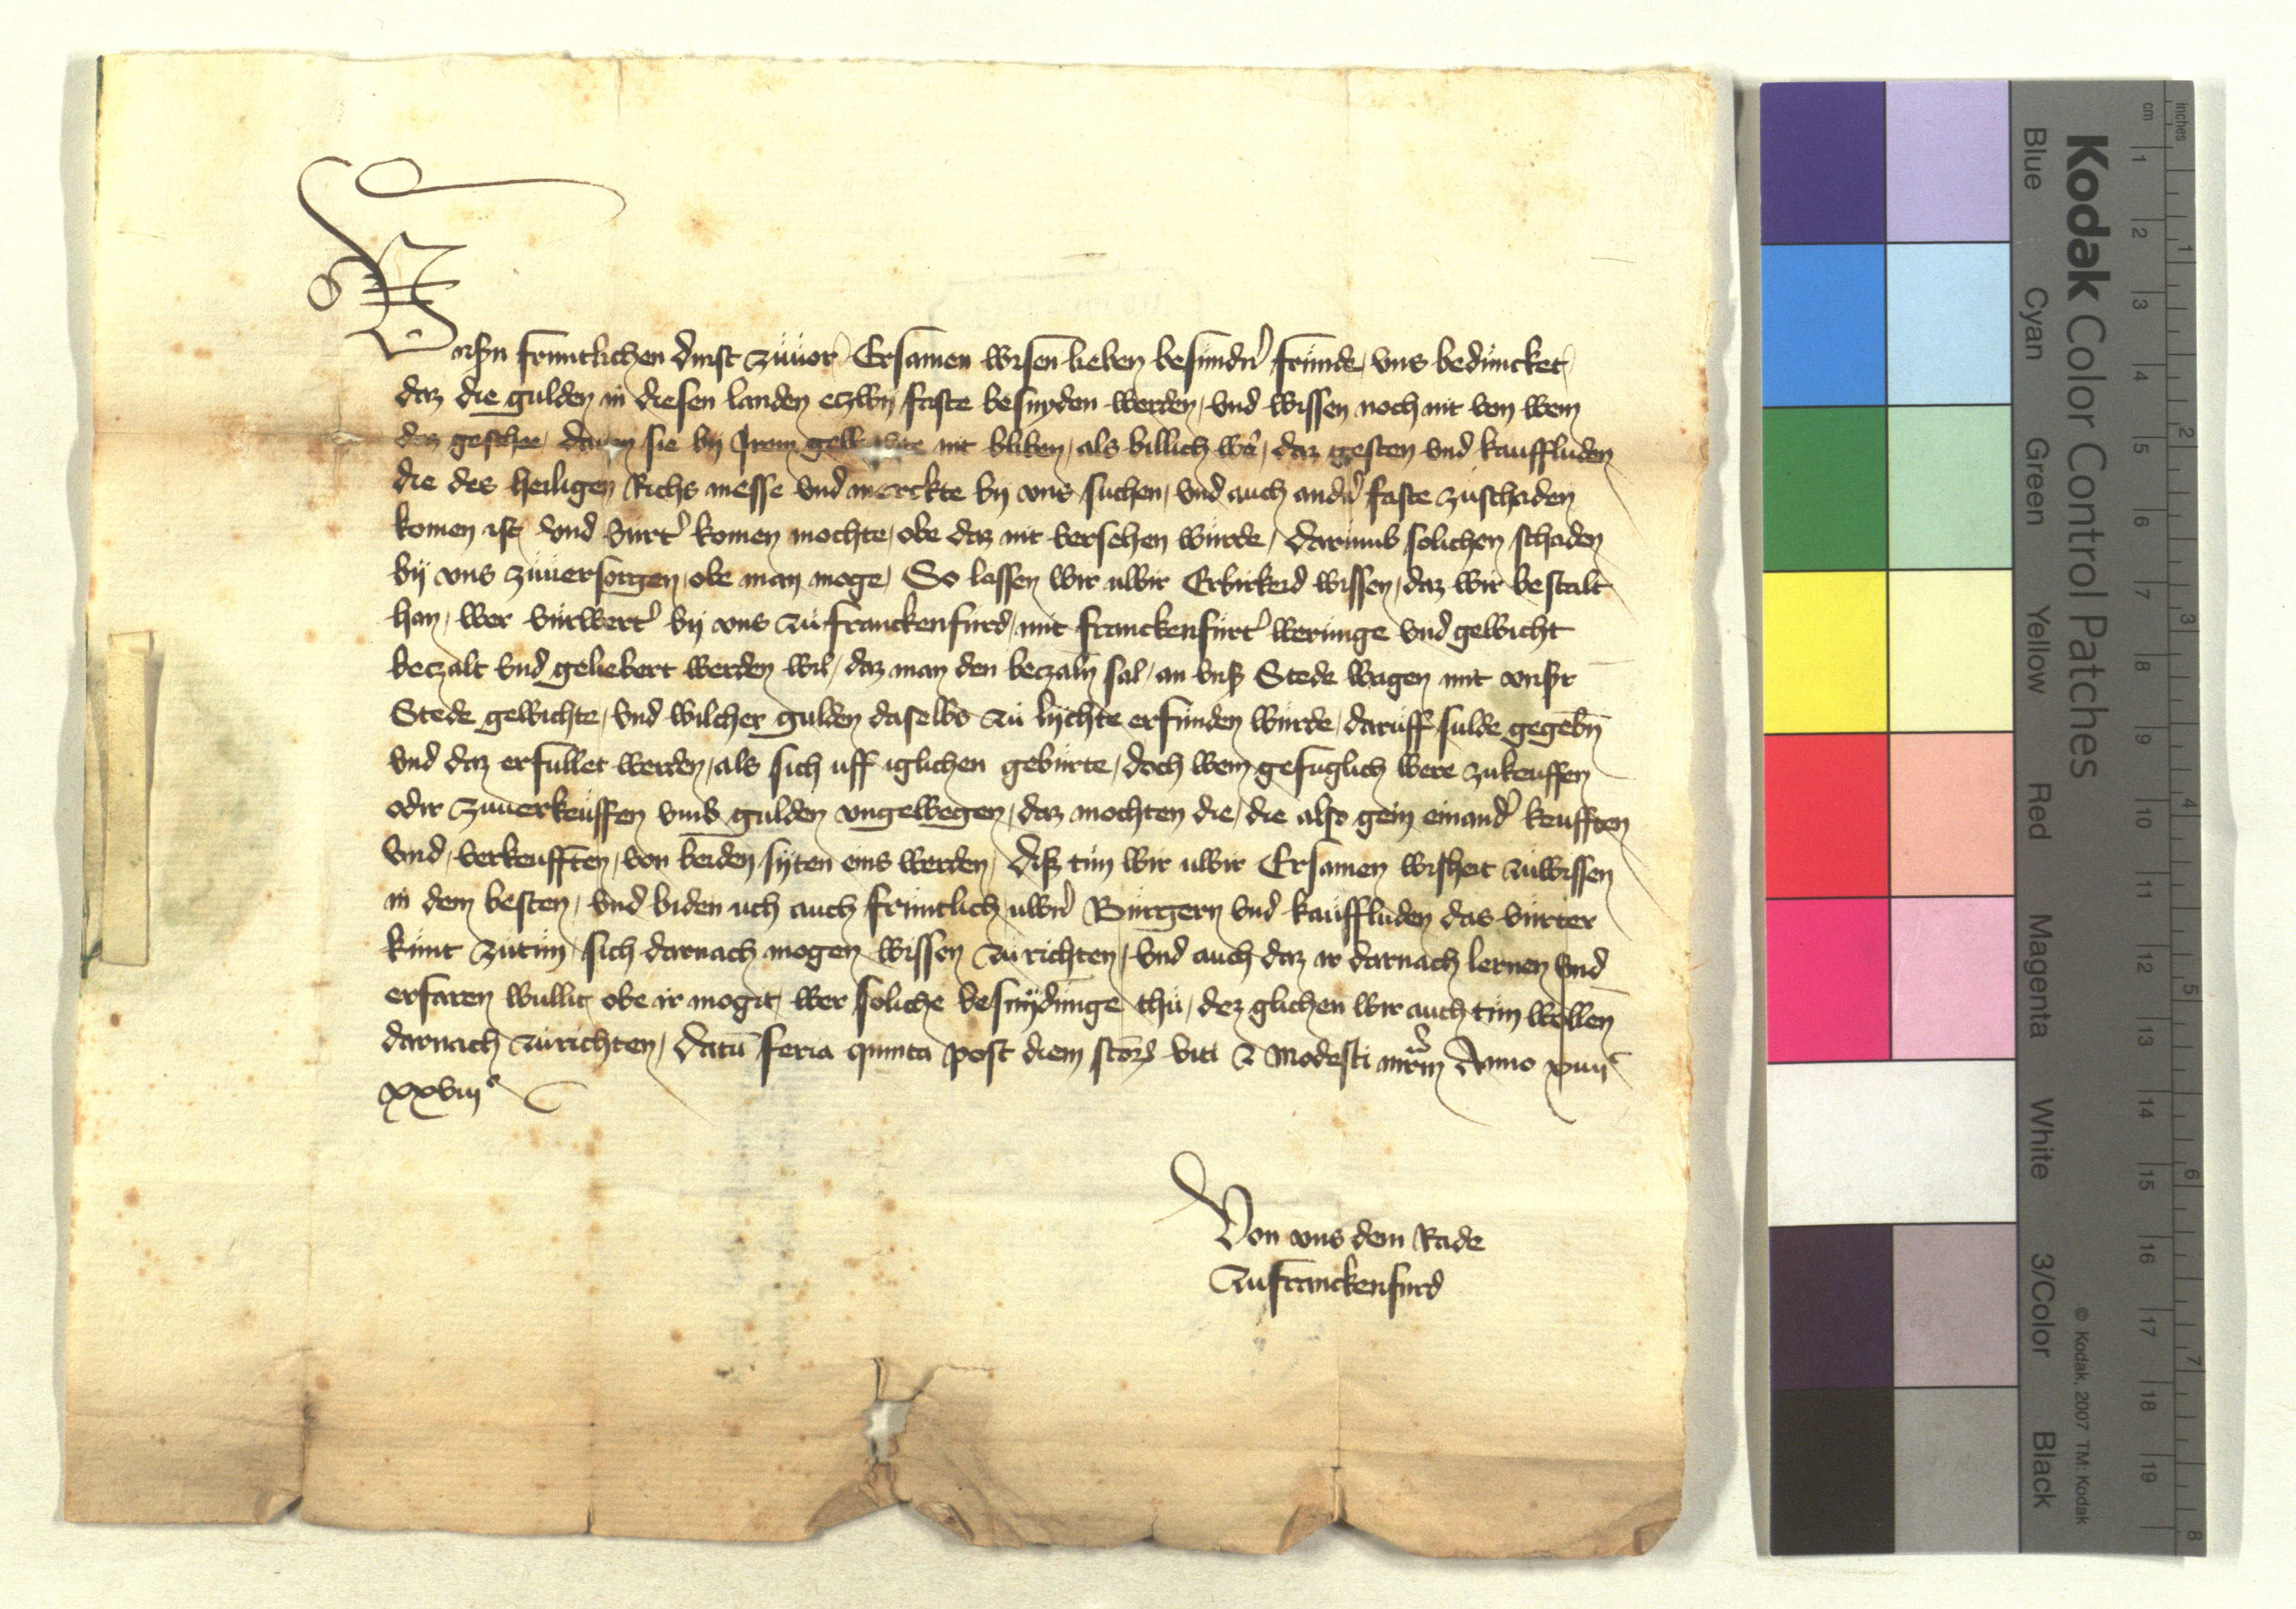 Vnsßn fruntlichen dinst zuuor Ersamen wisen lieben besundn frunde, vns beduncket
daz die gulden in diesen landen eczwy faste besnyden werden, vnd wissen noch nit von wem
daz geschee, sie by Irem nit bliben, als billich wer, daz gesten vnd kauffluden
die des heiligen Richs messe vnd merckte by vns suchen, vnd auch andn faste zuschaden
komen ist, vnd vurt komen mochte, obe daz nit versehen wurde, darumb solichen schaden
by vns zuuersorgen, obe man moge, So lassen wir uwir Erbirkeid wissen, daz wir bestalt
han, wer vurwert by vns zu franckenfurd, mit franckenfurt werunge vnd gewicht
beczalt vnd geliebert werden wil, daz man den beczaln sal, an vnß Stede wagen mit vnßr
Stede gewichte, vnd wilcher gulden daselbs zu lychte erfunden wurde, daruff sulde gegebn
vnd daz erfullet werden, als sich uff iglichen geburte, doch wem gefuglich were zukeuffen
odir zuuerkeuffen vmb gulden vngewegen, daz mochten die, die also gein einand keufften
vnd, verkeufften, von beiden syten eins werden, Diß tun wir uwir Ersamen wißheit zuwissen
in dem besten, vnd biden uch auch fruntlich uwn Burgern vnd kauffluden das vurter
kunt zutun, sich darnach mogen wissen zu richten, vnd auch daz ir darnach lernen vnd
erfaren wullit obe ir mogit, wer soliche besnydunge thu, dez glichen wir auch tun wollen
darnach zurichten, Datu feria quinta post diem scors viti & Modesti mrm Anno xiiijc
xxviijo
Von vns dem Rade
zufranckenfurd
Kodak Color Control Patches
Blue Cyan Green Yellow Red Magenta White 3/Color Black
© Kodak, 2007 TM: Kodak
inches 1 2 3 4 5 6 7 8
cm 1 2 3 4 5 6 7 8 9 10 11 12 13 14 15 16 17 18 19